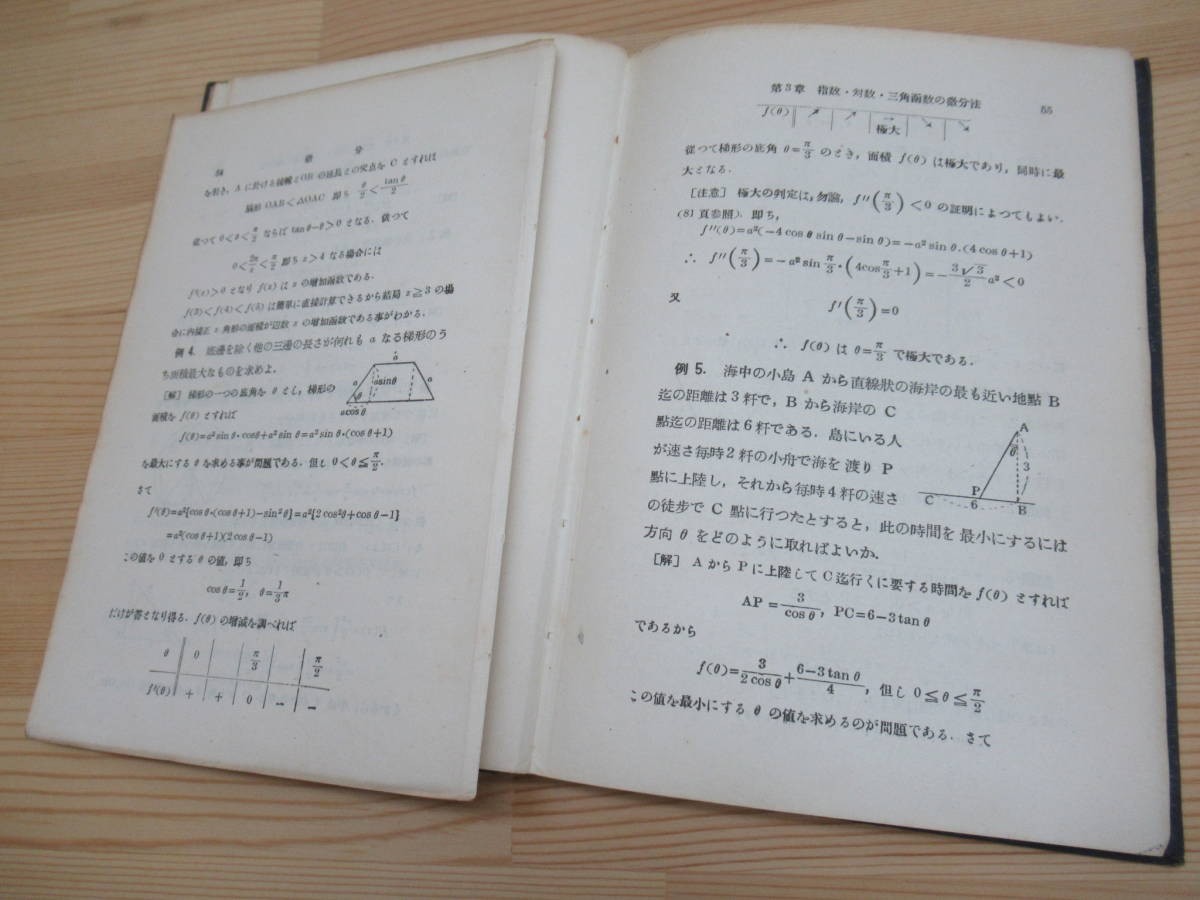 54
微分
を引き,Aに於ける接線とOBの延長との交点をCとすれば
扇形OAB<△OAC 即ち θ/2<tanθ/2
従つて 0<θ<π/2 ならば tanθ-θ>0 となる.従つて
0<2π/x<π/2 即ち x>4 なる場合には
f'(x)>0 となり f(x) は x の増加函数である.
f(3)<f(4)<f(5) は簡単に直接計算できるから結局 x≧3 の場
合に内接正 x 角形の面積が辺数 x の増加函数である事がわかる.
例 4. 底邊を除く他の三邊の長さが何れも a なる梯形のう
ち面積最大なものを求めよ.
a
a
asinθ
a
θ
acosθ
[解] 梯形の一つの底角を θ とし,梯形の
面積を f(θ) とすれば
f(θ)=a²sinθ·cosθ+a²sinθ=a²sinθ·(cosθ+1)
を最大にする θ を求める事が問題である.但し 0<θ≦π/2.
さて
f'(θ)=a²{cosθ·(cosθ+1)-sin²θ}=a²{2cos²θ+cosθ-1}
=a²(cosθ+1)(2cosθ-1)
この値を 0 とする θ の値,即ち
cosθ=1/2, θ=1/3π
だけが答となり得る.f(θ) の増減を調べれば
θ 0 π/3 π/2
f'(θ) + + 0 − −
第3章 指数・対数・三角函数の微分法 55
f(θ) ↗ ↗ → 極大 ↘ ↘
従つて梯形の底角 θ=π/3 のとき,面積 f(θ) は極大であり,同時に最
大となる.
[注意] 極大の判定は,勿論,f''(π/3)<0 の証明によつてもよい.
(81頁参照).即ち,
f''(θ)=a²(-4cosθsinθ-sinθ)=-a²sinθ.(4cosθ+1)
∴ f''(π/3)=-a²sinπ/3·(4cosπ/3+1)=-3√3/2a²<0
又 f'(π/3)=0
∴ f(θ) は θ=π/3 で極大である.
例 5. 海中の小島 A から直線狀の海岸の最も近い地點 B
迄の距離は3粁で,B から海岸の C
點迄の距離は6粁である.島にいる人
が速さ毎時2粁の小舟で海を渡り P
點に上陸し,それから毎時4粁の速さ
の徒歩で C 點に行つたとすると,此の時間を最小にするには
方向 θ をどのように取ればよいか.
A
θ
3
C
P
6
B
[解] A から P に上陸して C 迄行くに要する時間を f(θ) とすれば
AP=3/cosθ, PC=6-3tanθ
であるから
f(θ)=3/2cosθ+6-3tanθ/4, 但し 0≦θ≦π/2
この値を最小にする θ の値を求めるのが問題である.さて